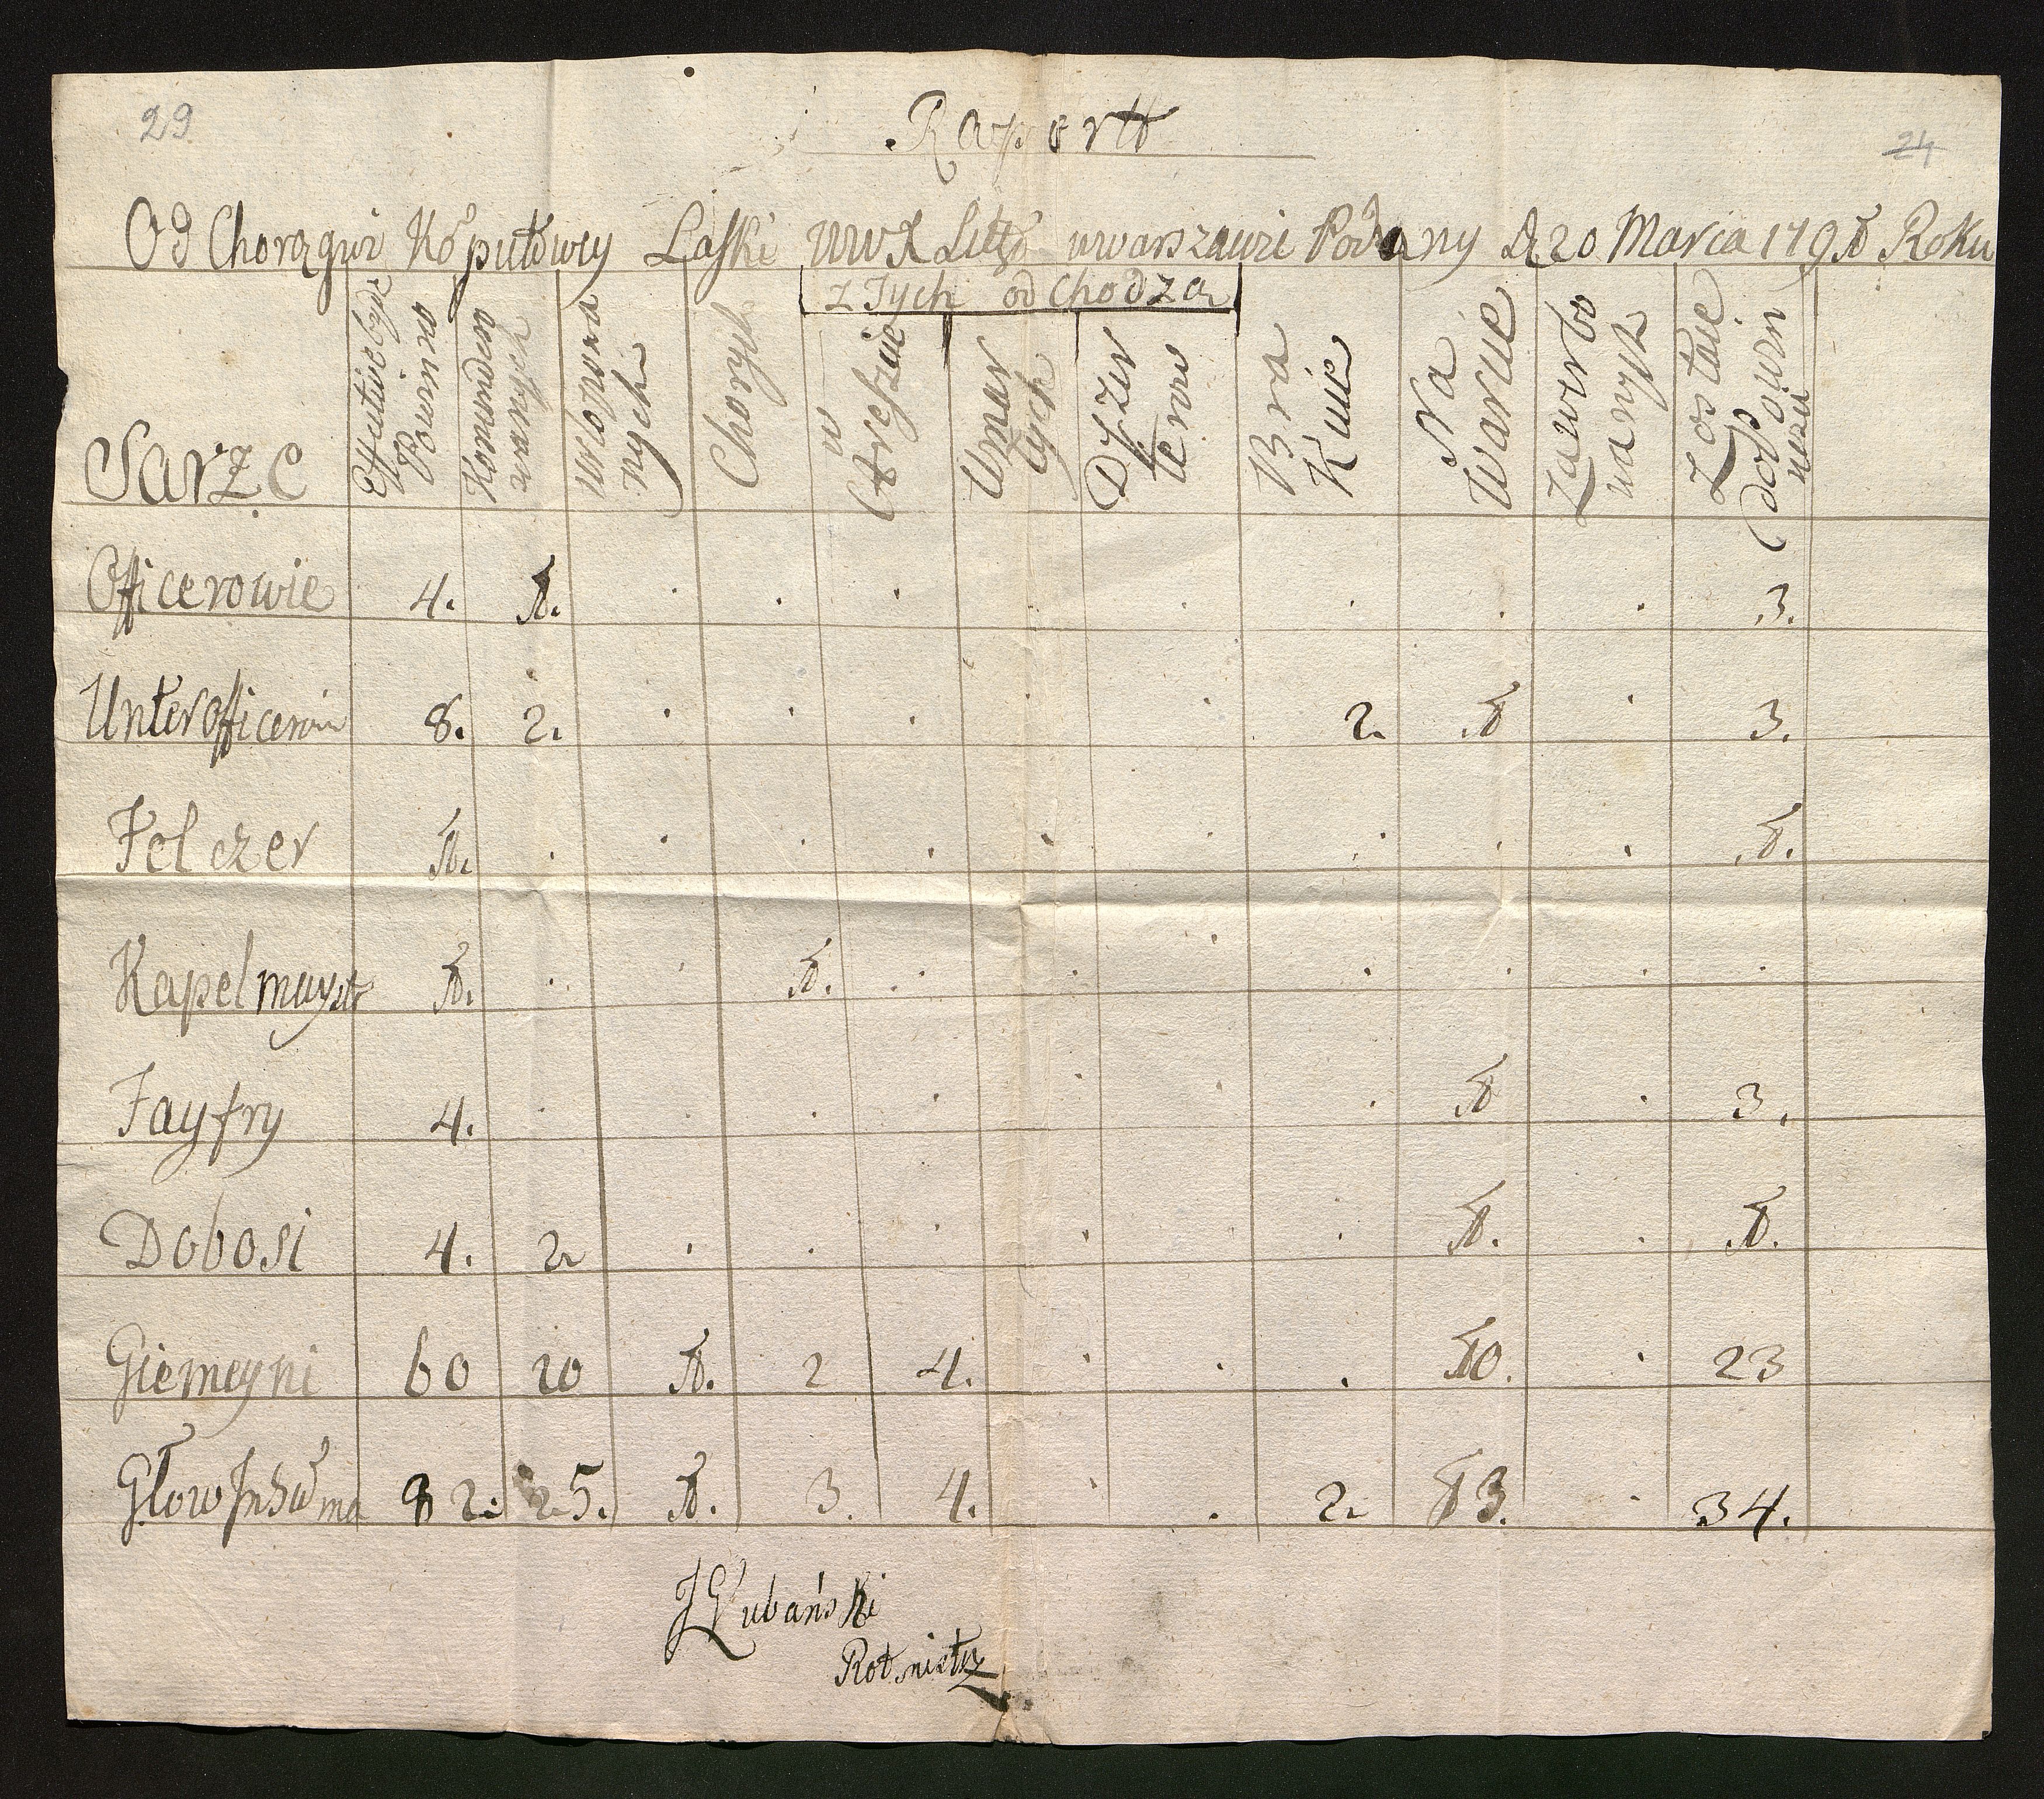 29
Raportt
24
Od Chorągwi Kõputowey Laski WWX Littõ w warszawie Podany D 20 Marca 1791 Roku
z Tych od Chodza
Sarże
Effective bydz Powinno
Komenderowanych
Urlopowanych
Chorych
w Areszcie
Umarłych
Dyzerterow
Brakuie
Na Warcie
Zawerbowanych
Zostaie do Powinnuszu
Officerowie 4. 1. . . . . . . . 3.
Unterofficerow 8. 2. . . . . 2. 1 . 3.
Felczer 1. . . . . . . . . . 1.
Kapelmaystr 1. . . 1. . . . . . . .
Fayfry 4. . . . . . . . 1 . 3.
Dobosi 4. 2 . . . . . . 1. . 1.
Giemeyni 60 20 1. 2 4. . . . 10. . 23
Głow In Suma 82. 25. 1. 3. 4. . . 2. 13. . 34.
J Łubański
Rotmistrz